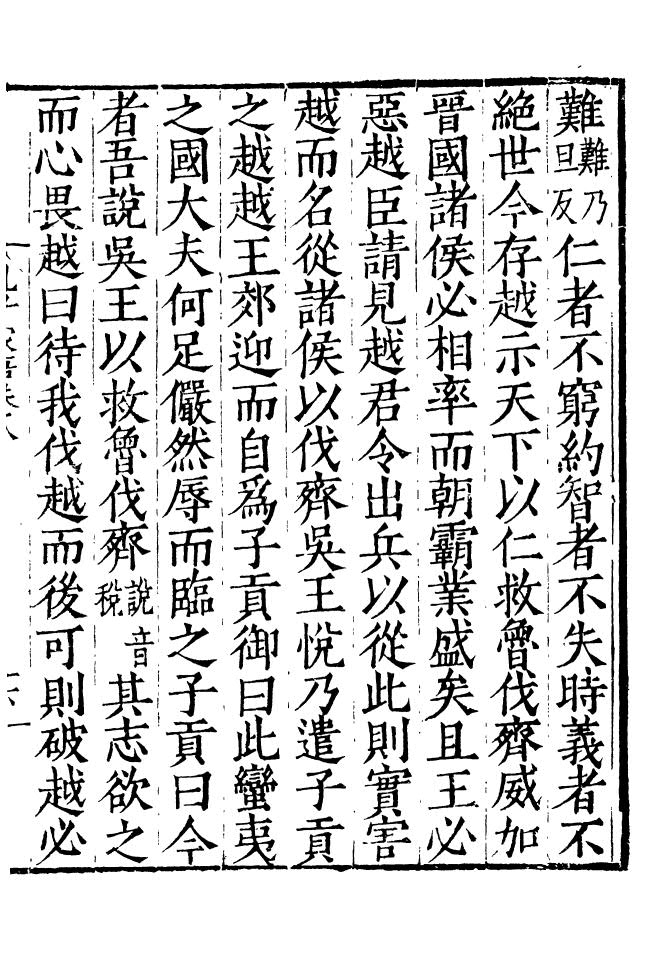 難難乃旦反仁者不窮約智者不失時義者不
絕世今存越示天下以仁救魯伐齊威加
晉國諸侯必相率而朝霸業盛矣且王必
惡越臣請見越君令出兵以從此則實害
越而名從諸侯以伐齊吳王悅乃遣子貢
之越越王郊迎而自爲子貢御曰此蠻夷
之國大夫何足儼然辱而臨之子貢曰今
者吾說吳王以救魯伐齊說音稅其志欲之
而心畏越曰待我伐越而後可則破越必